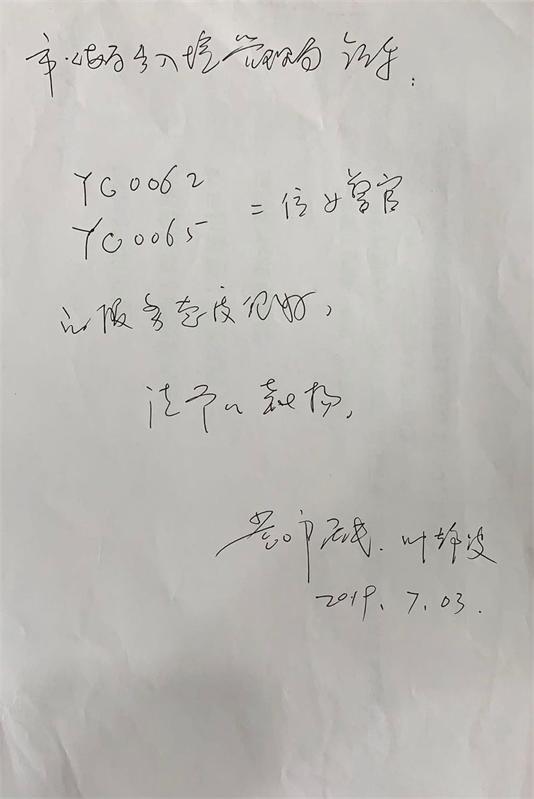 市公安局出入境管理局领导:
YC0062
YC0065 =位女警官
的服务态度很好,
请予以表扬,
市民. 叶静波
2019. 7. 03.